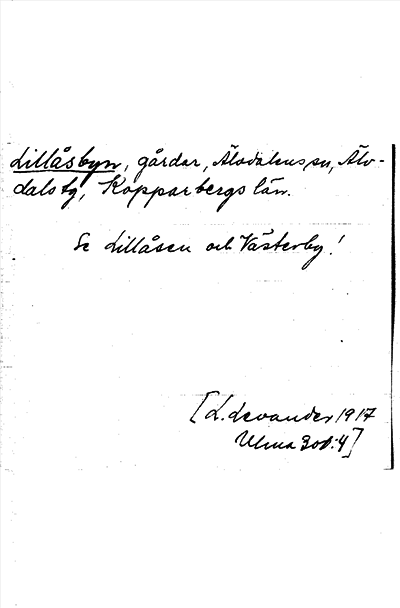 Lillåsbyn, gårdar, Älvdalens sn, Älv-
dals tg, Kopparbergs län.
Se Lillåsen och Västerby!
[L. Levander 1917
Ulma 301:4]